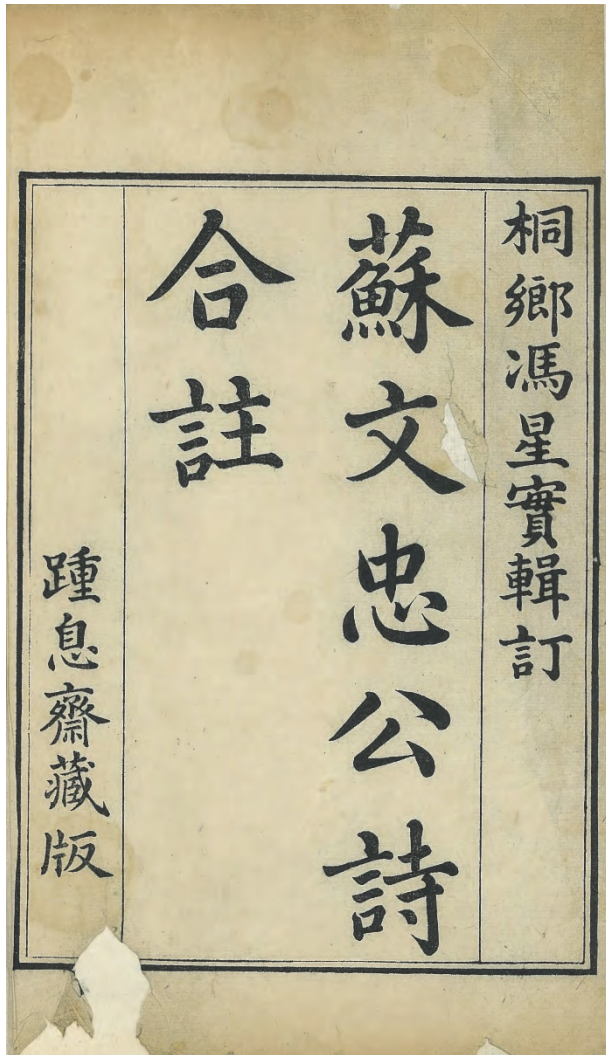 桐鄉馮星實輯訂
蘇文忠公詩
合註
踵息齋藏版